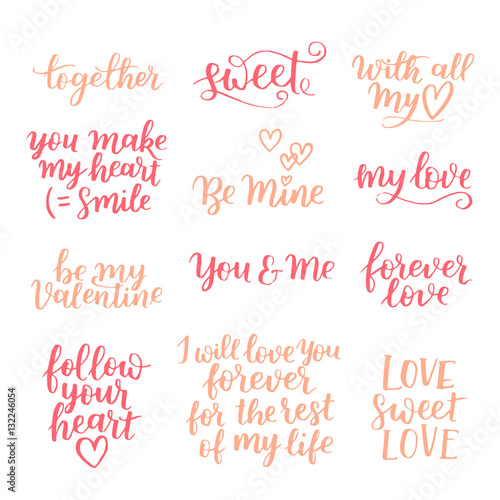 together
sweet
with all
my
you make
my heart
(= Smile
Be Mine
my love
be my
Valentine
You & Me
forever
love
follow
your
heart
I will love you
forever
for the rest
of my life
LOVE
Sweet
LOVE
132246054
Adobe Stock